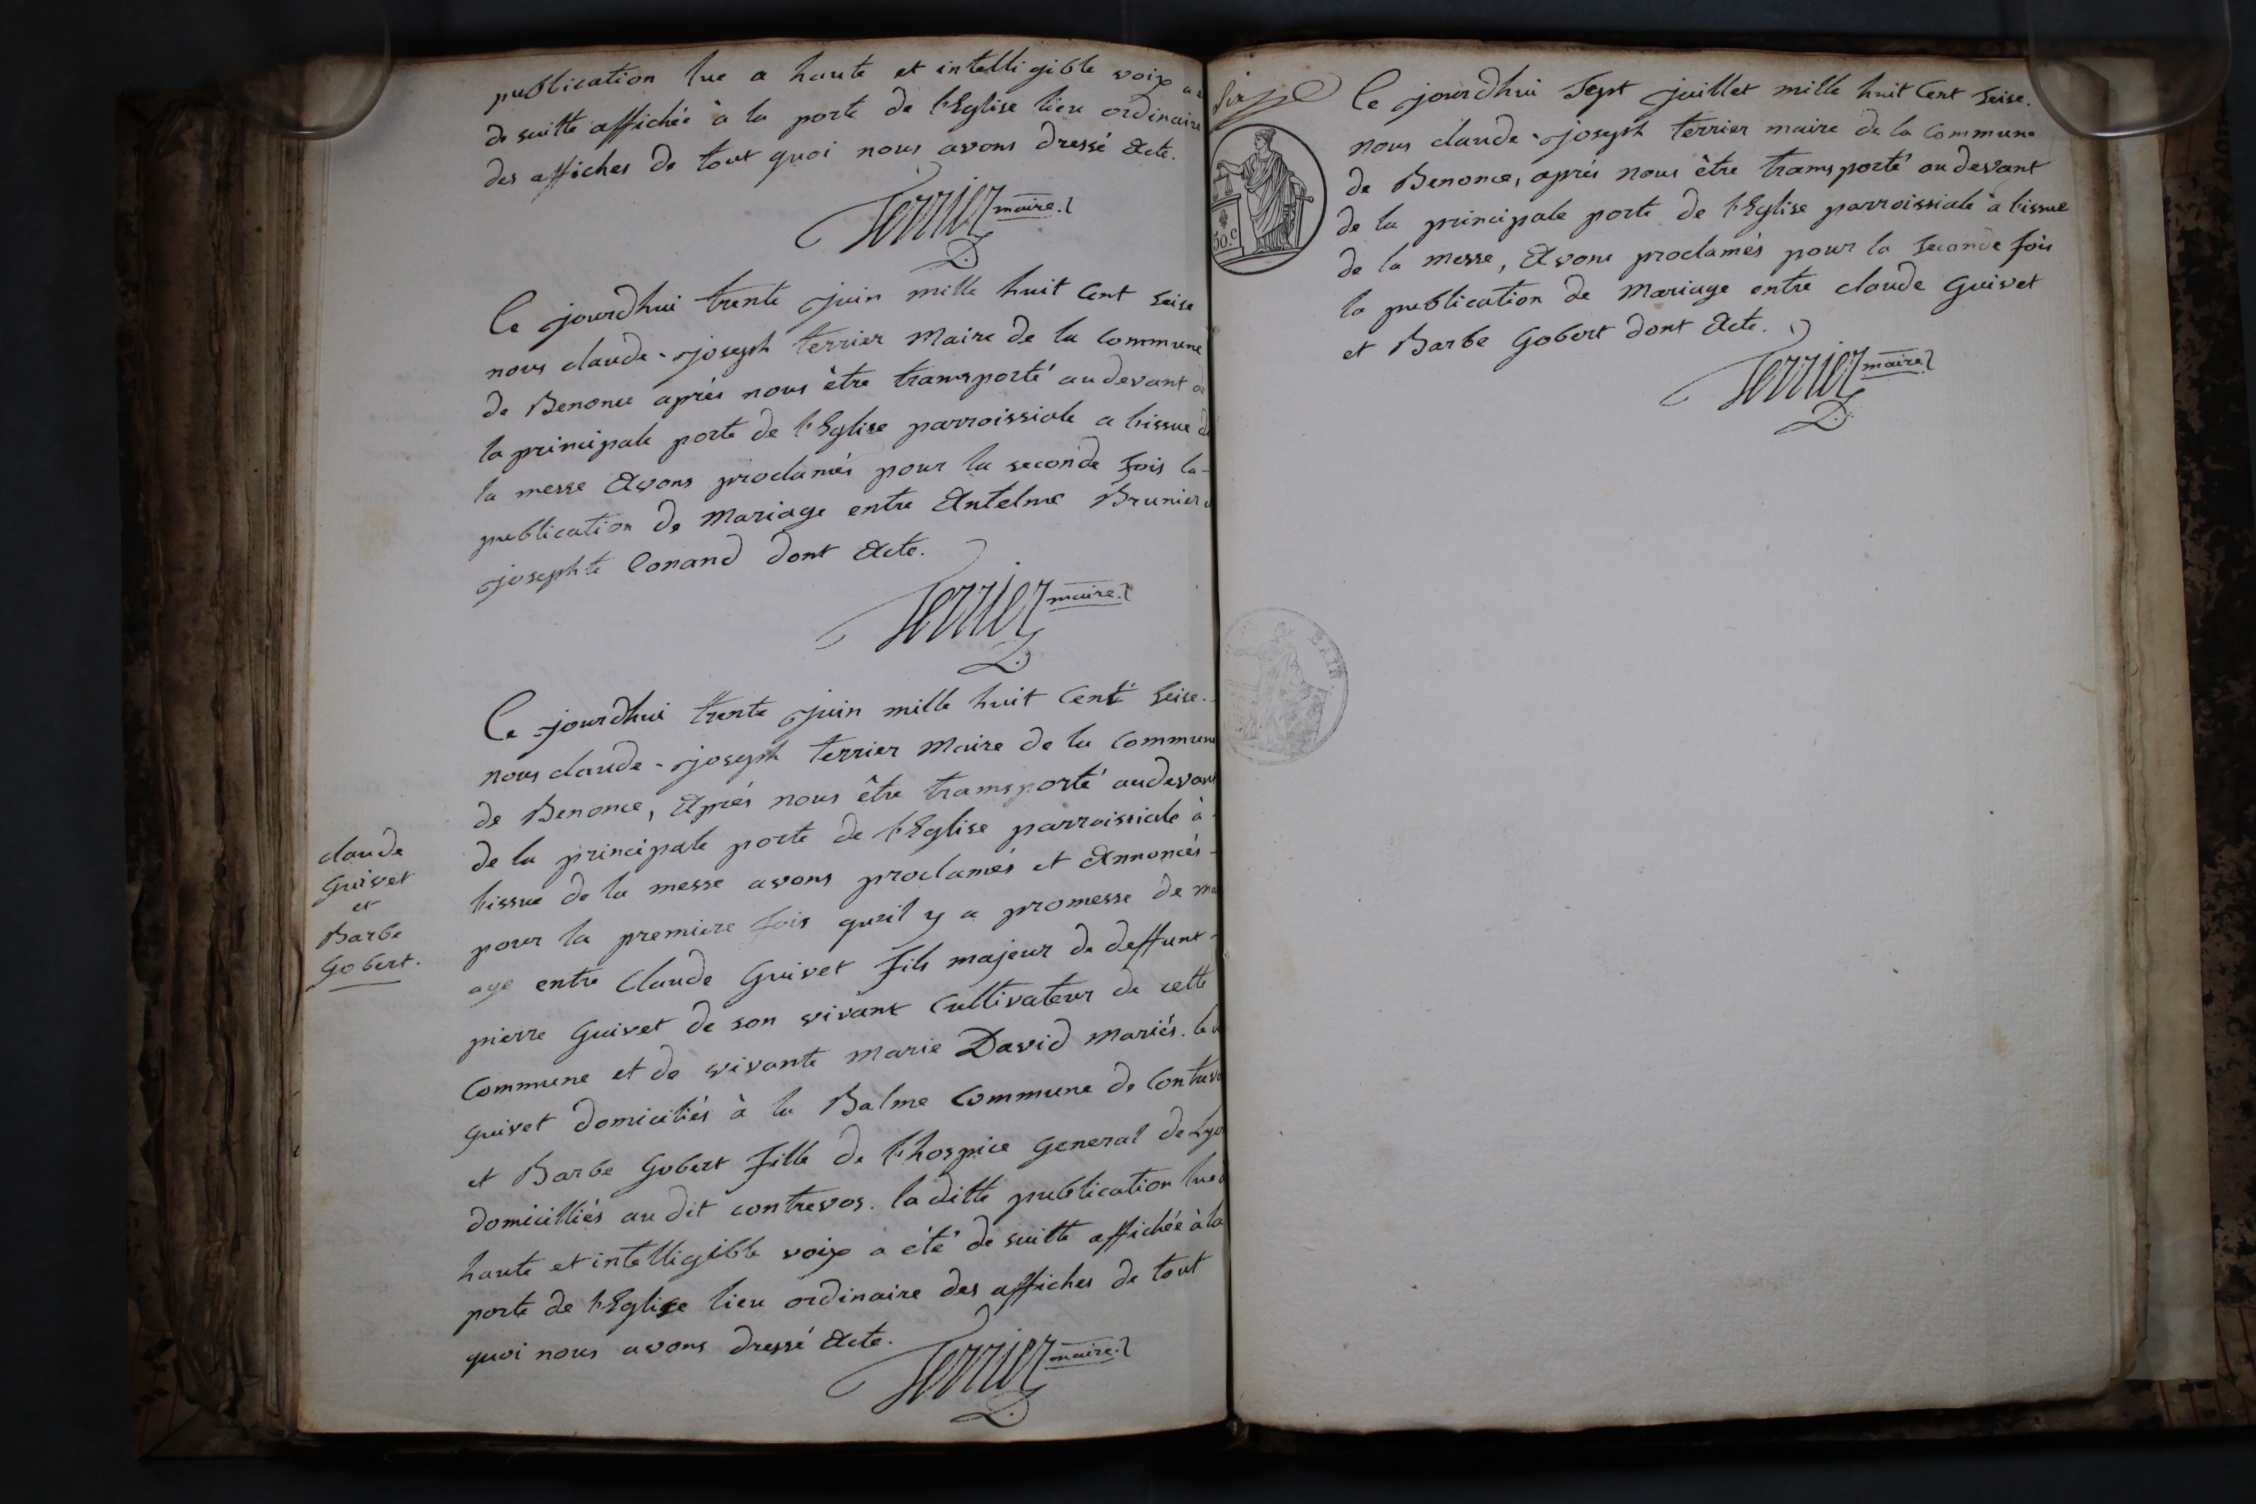 publication lue a haute et intelligible voix a
de suitte affichée à la porte de l'Eglise lieu ordinaire
des affiches de tout quoi nous avons dressé Acte.
Terrier maire.
Ce jourdhui trente juin mille huit Cent seise
nous claude-joseph terrier Maire de la Commune
de Benonce après nous être transporté audevant de
la principale porte de l'Eglise parroissiale a l'issue de
la messe Avons proclamés pour la seconde fois la
publication de Mariage entre Antelme Brunier
josephte Conand dont Acte.
Terrier maire.
Ce jourdhui trente juin mille huit Cent seise.
nous claude-joseph terrier Maire de la Commune
de Benonce, Après nous être transporté audevant
de la principale porte de l'Eglise parroissiale à
l'issue de la messe avons proclamés et Annoncés
pour la premiere fois qu'il y a promesse de mari
age entre Claude Guivet fils majeur de deffunt
pierre Guivet de son vivant Cultivateur de cette
Commune et de vivante Marie David Mariés. le
Guivet domiciliés à la Balme Commune de Contrevos
et Barbe Gobert fille de l'hospice General de Lyon
domicilliés au dit contrevos. la ditte publication lue à
haute et intelligible voix a été de suitte affichée à la
porte de l'Eglise lieu ordinaire des affiches de tout
quoi nous avons dressé Acte.
Terrier maire.
claude
Guivet
et
Barbe
Gobert.
six
30.C
Ce jourdhui Sept juillet mille huit Cent seise.
nous claude-joseph terrier maire de la Commune
de Benonce, après nous être transporté audevant
de la principale porte de l'Eglise parroissiale à l'issue
de la messe, Avons proclamés pour la seconde fois
la publication de Mariage entre claude Guivet
et Barbe Gobert dont Acte.
Terrier maire